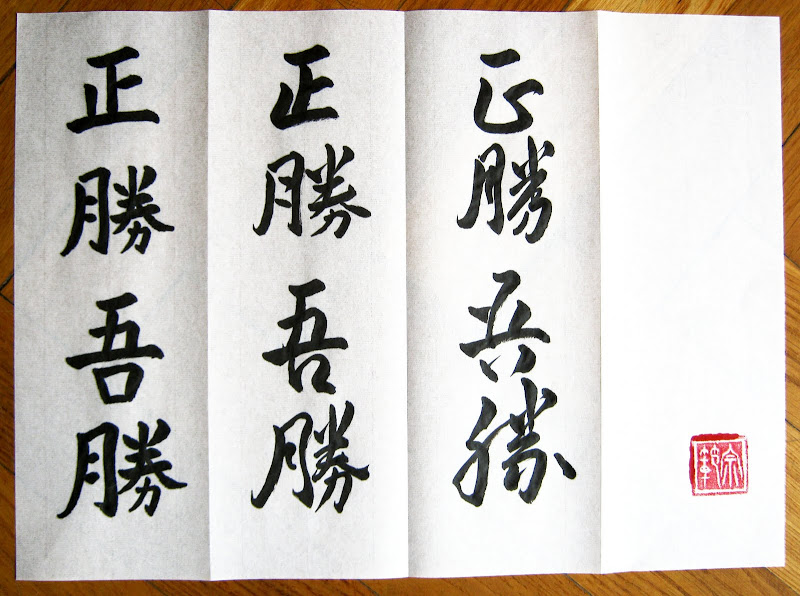 正勝吾勝
正勝吾勝
正勝吾勝